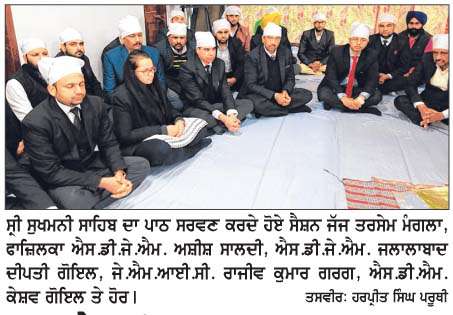 ਸ਼੍ਰੀ ਸੁਖਮਨੀ ਸਾਹਿਬ ਦਾ ਪਾਠ ਸਰਵਣ ਕਰਦੇ ਹੋਏ ਸੈਸ਼ਨ ਜੱਜ ਤਰਸੇਮ ਮੰਗਲਾ,
ਫਾਜ਼ਿਲਕਾ ਐਸ.ਡੀ.ਜੇ.ਐਮ. ਅਸ਼ੀਸ਼ ਸਾਲਦੀ, ਐਸ.ਡੀ.ਜੇ.ਐਮ. ਜਲਾਲਾਬਾਦ
ਦੀਪਤੀ ਗੋਇਲ, ਜੇ.ਐਮ.ਆਈ.ਸੀ. ਰਾਜੀਵ ਕੁਮਾਰ ਗਰਗ, ਐਸ.ਡੀ.ਐਮ.
ਕੇਸ਼ਵ ਗੋਇਲ ਤੇ ਹੋਰ। ਤਸਵੀਰ: ਹਰਪ੍ਰੀਤ ਸਿੰਘ ਪਰੂਥੀ